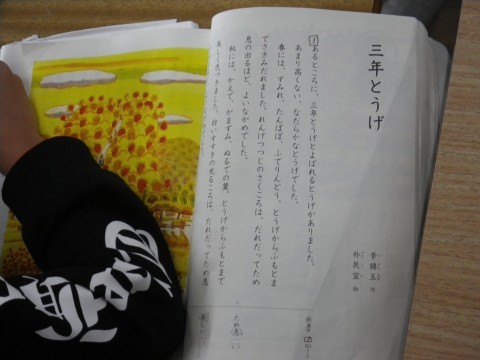 三年とうげ
李錦玉 作
朴民宜 絵
1 あるところに、三年とうげとよばれるとうげがありました。
あまり高くない、なだらかなとうげでした。
春には、すみれ、たんぽぽ、ふでりんどう。とうげからふもとま
でさきみだれました。れんげつつじのさくころは、だれだってため
息の出るほど、よいながめでした。
秋には、かえで、がまずみ、ぬるでの葉。とうげからふもとまで
美しく色づきました。白いすすきの光るころは、だれだってため息
ため息
美しい